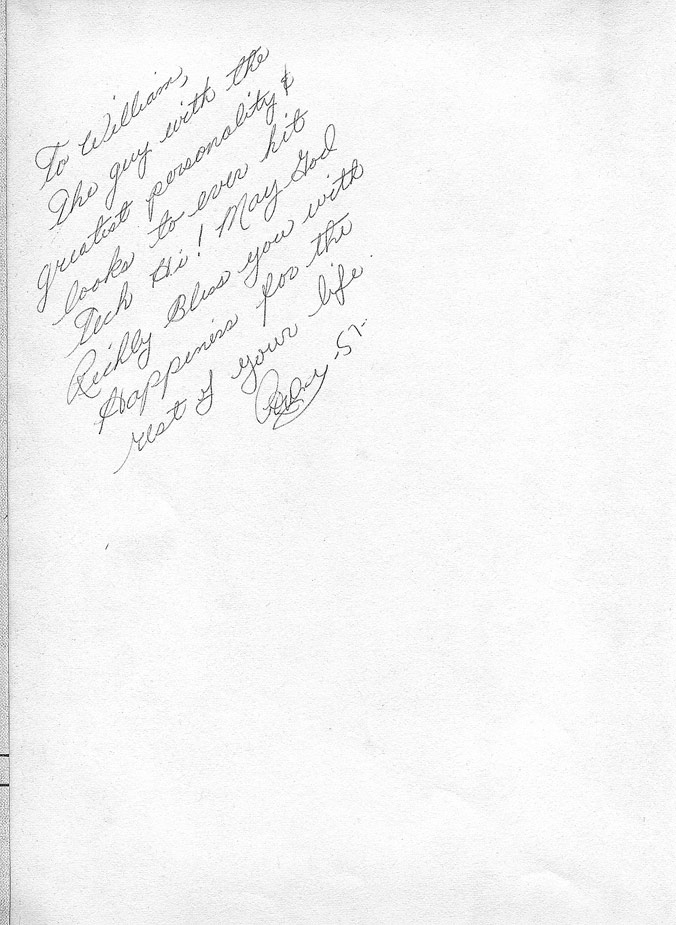 To William,
The guy with the
greatest personality &
looks to ever hit
Tech Hi! May God
Richly Bless you with
Happiness for the
rest of your life.
-57-